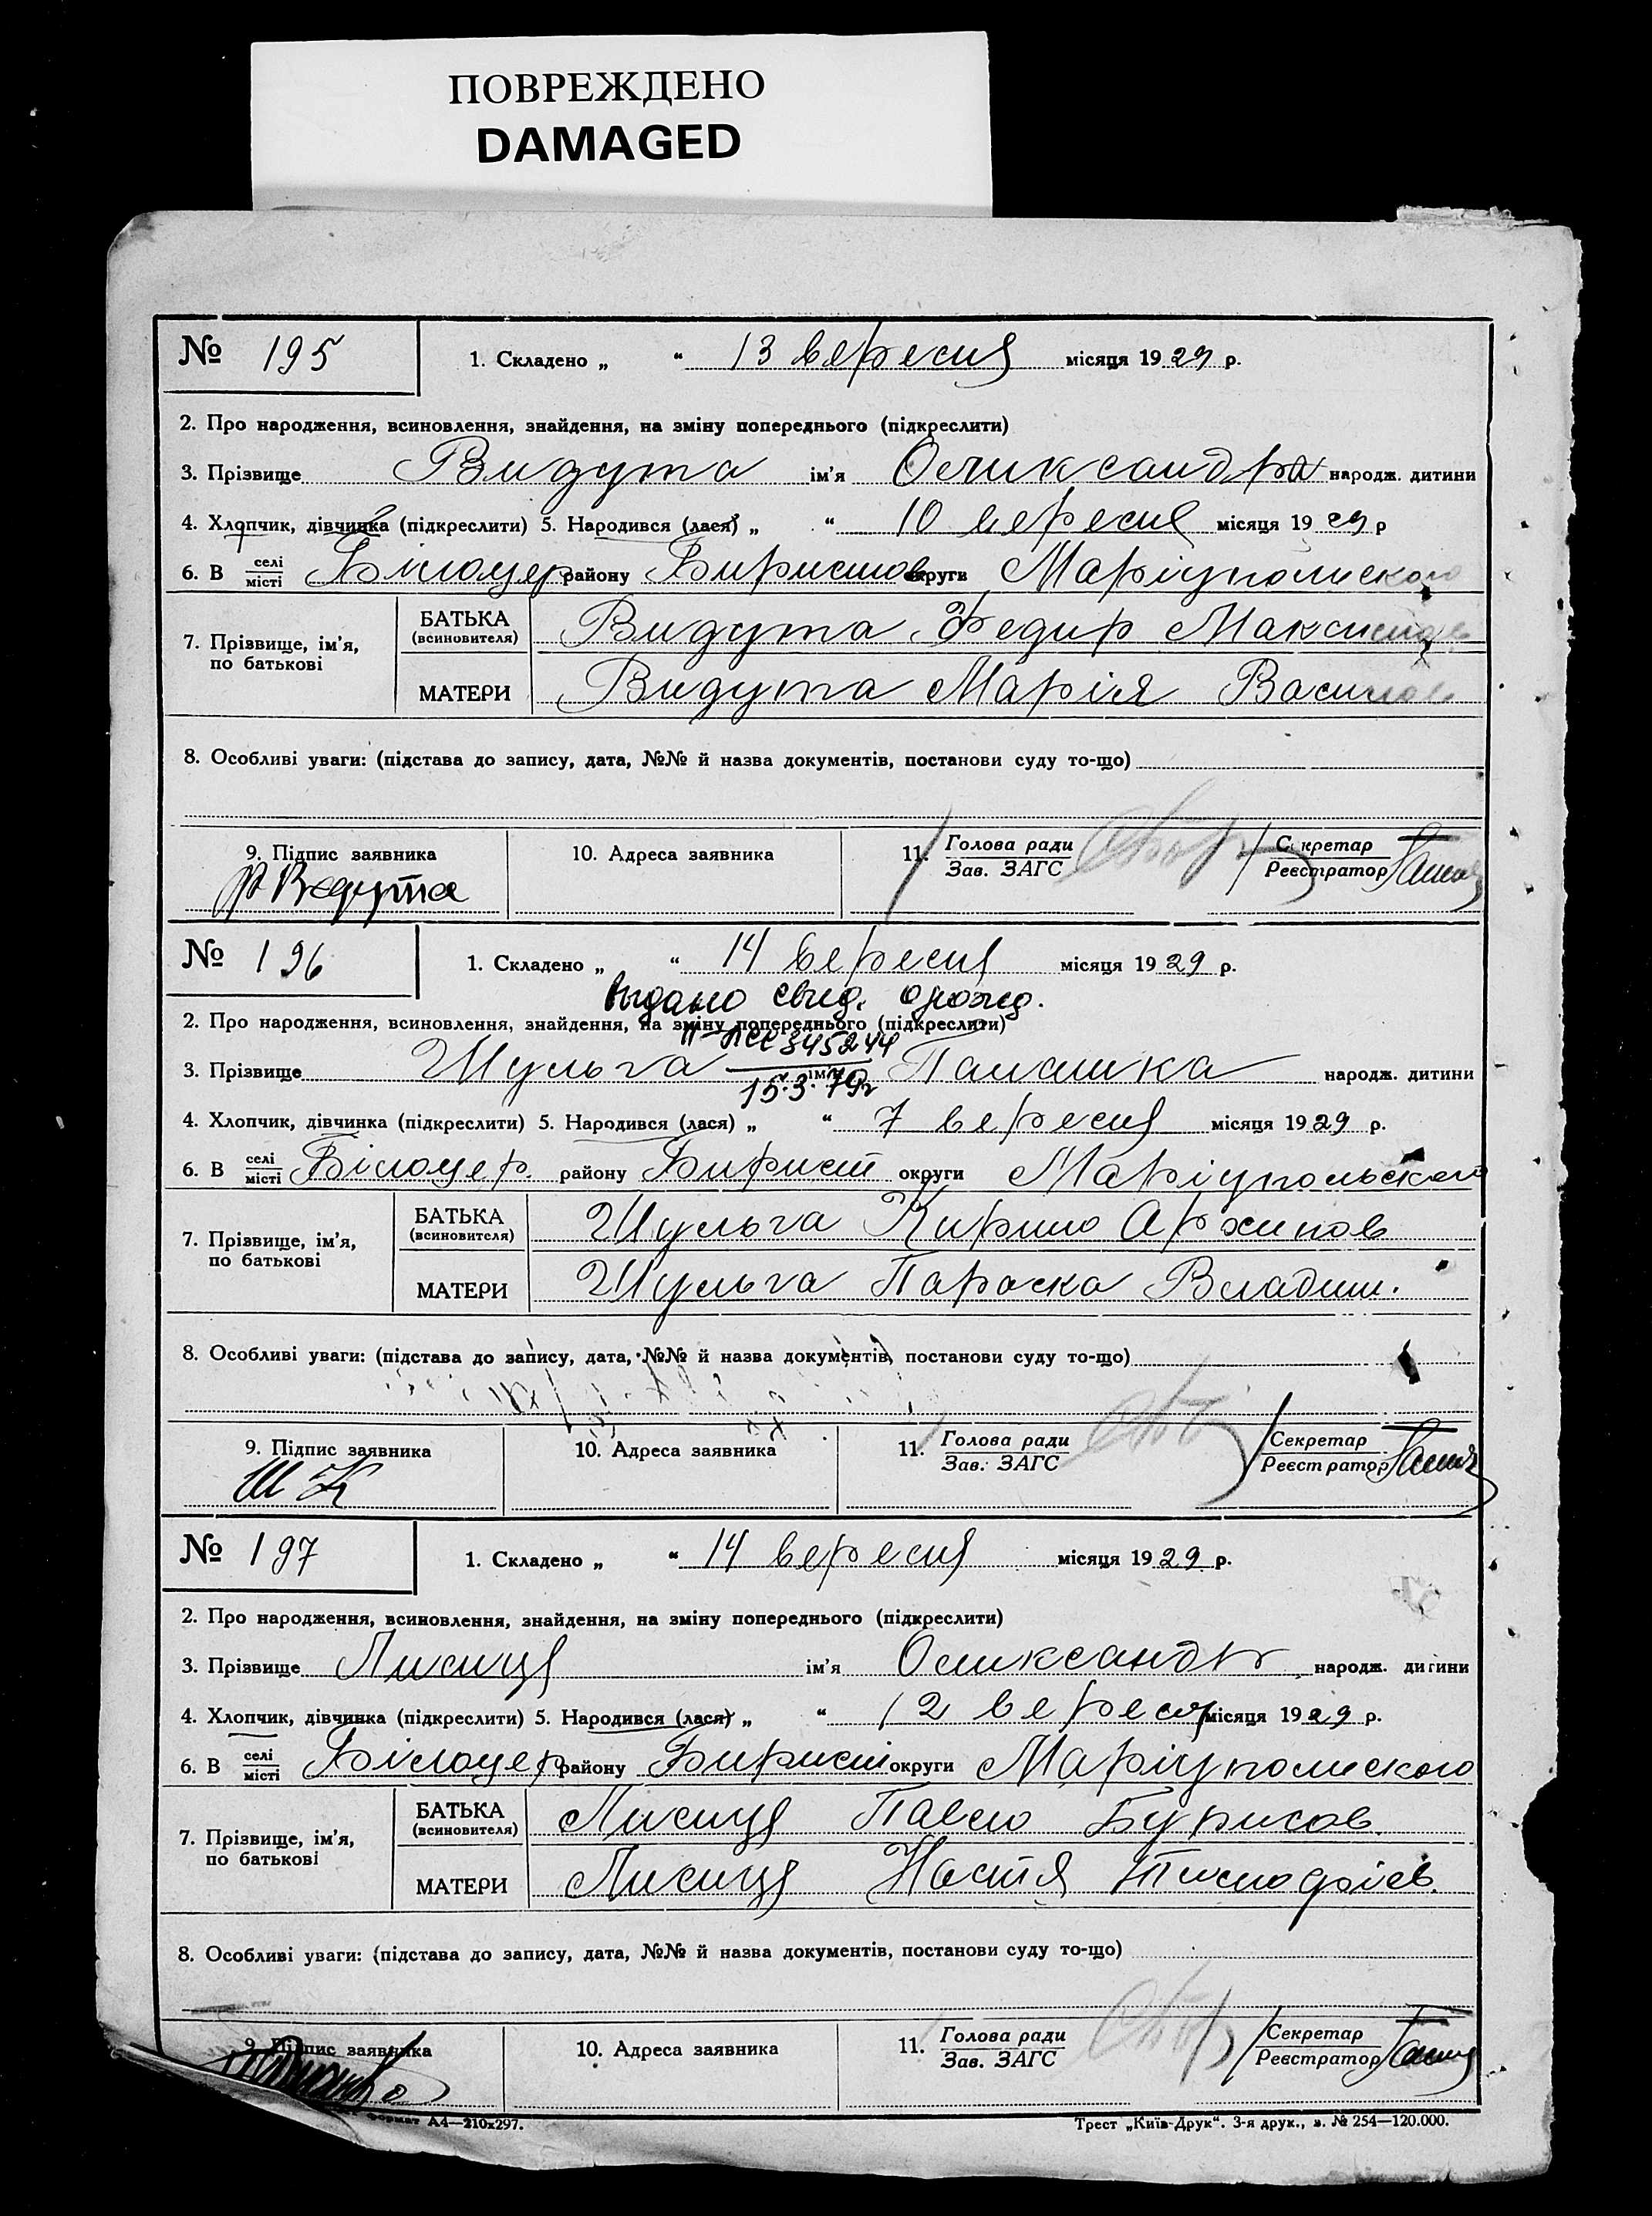 ПОВРЕЖДЕНО
DAMAGED
№ 195 1. Складено „ “ 13 вересня місяця 1929 р.
2. Про народження, всиновлення, знайдення, на зміну попереднього (підкреслити)
3. Прізвище Видута ім’я Оликсандра народж. дитини
4. Хлопчик, дівчинка (підкреслити) 5. Народився (лася) „ “ 10 вересня місяця 1929 р
6. В селі/місті Білоцер району округи Маріуполиского
7. Прізвище, ім’я, по батькові
БАТЬКА (всиновителя) Видута Федир Максимов
МАТЕРИ Видута Марія Василов
8. Особливі уваги: (підстава до запису, дата, №№ й назва документів, постанови суду то-що)
9. Підпис заявника 10. Адреса заявника 11. Голова ради / Зав. ЗАГС Секретар / Реєстратор
Ф Видута
№ 196 1. Складено „ “ 14 вересня місяця 1929 р.
Видано свид. о рожд.
2. Про народження, всиновлення, знайдення, на зміну попереднього (підкреслити)
345244
3. Прізвище Шульга ім’я Палашка народж. дитини
15.3.79г
4. Хлопчик, дівчинка (підкреслити) 5. Народився (лася) „ “ 7 вересня місяця 1929 р.
6. В селі/місті Білоцер. району Бирист округи Маріупольского
7. Прізвище, ім’я, по батькові
БАТЬКА (всиновителя) Шульга Кирило Архипов
МАТЕРИ Шульга Параска Владим.
8. Особливі уваги: (підстава до запису, дата, №№ й назва документів, постанови суду то-що)
9. Підпис заявника 10. Адреса заявника 11. Голова ради / Зав. ЗАГС Секретар / Реєстратор
Ш К
№ 197 1. Складено „ “ 14 вересня місяця 1929 р.
2. Про народження, всиновлення, знайдення, на зміну попереднього (підкреслити)
3. Прізвище Лисиця ім’я Оликсандр народж. дитини
4. Хлопчик, дівчинка (підкреслити) 5. Народився (лася) „ “ 12 вересня місяця 1929 р.
6. В селі/місті Білоцер району Бирист округи Маріуполиского
7. Прізвище, ім’я, по батькові
БАТЬКА (всиновителя) Лисиця Павло Бурисов
МАТЕРИ Лисиця Настя Тимофіев.
8. Особливі уваги: (підстава до запису, дата, №№ й назва документів, постанови суду то-що)
9. Підпис заявника 10. Адреса заявника 11. Голова ради / Зав. ЗАГС Секретар / Реєстратор
формат А4—210х297. Трест „Київ-Друк“. 3-я друк., з. № 254—120.000.